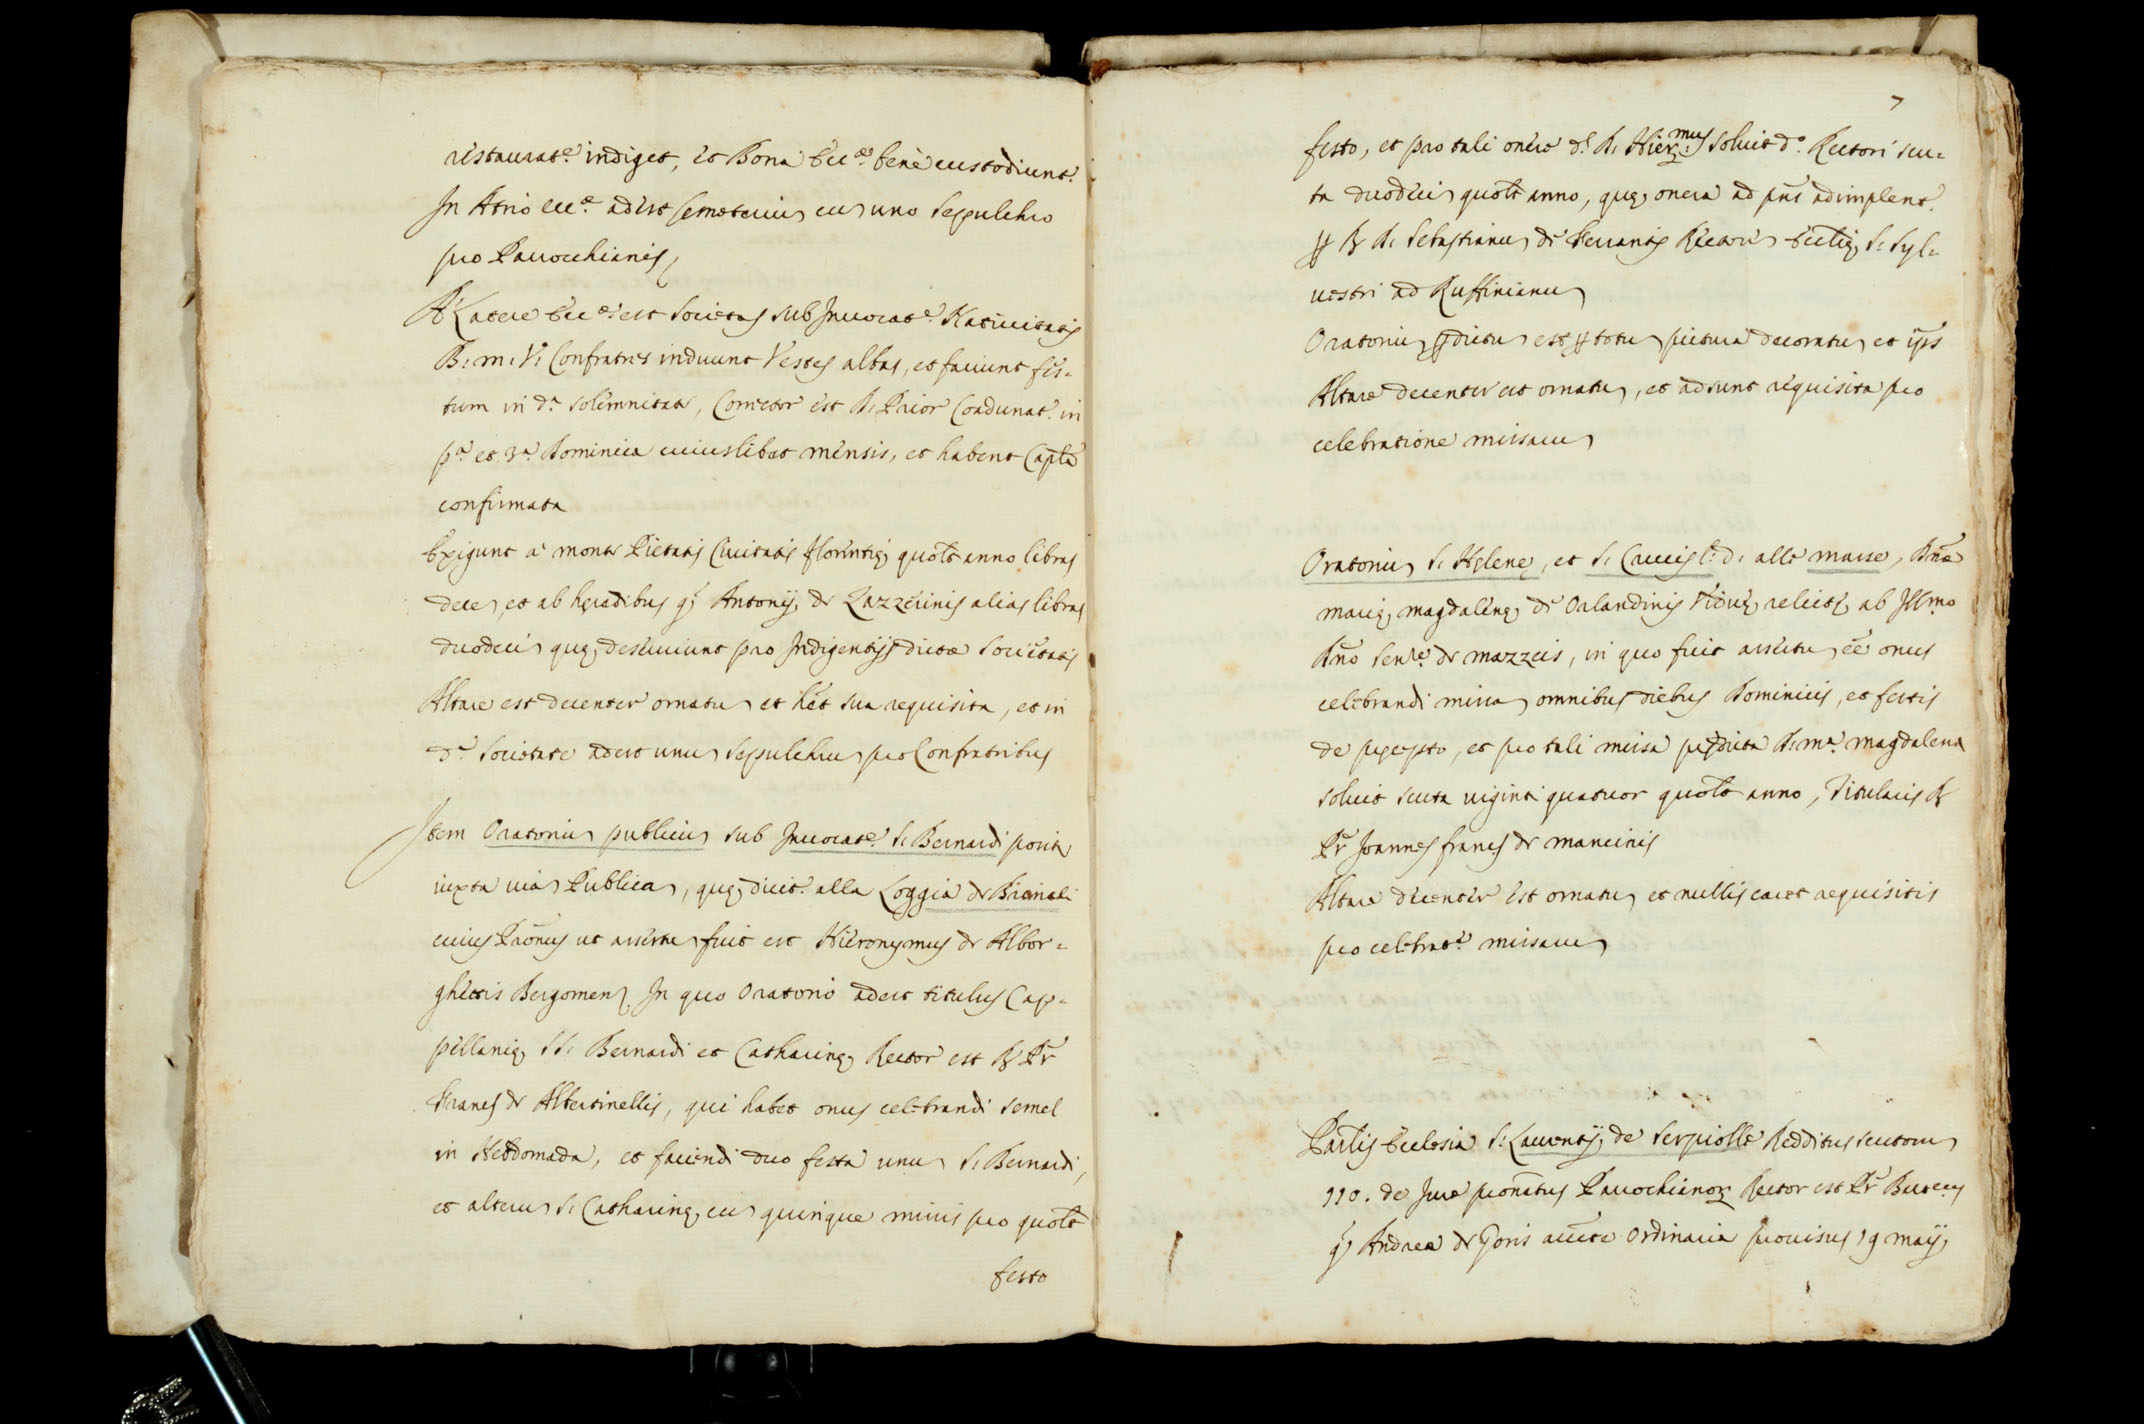 restaurat.e indiget, et Bona Ecc.ae benè custodiunt.r
In Atrio ecc.e adest Cemeteriu cu uno Sepulchro
pro Parrochianis
A Latere Ecc.e est Societas sub Invocat.e Nativitatis
B: m: V: Confratres induunt Vestes albas, et faciunt fes=
tum in d.a solemnitate, Corrector est D. Prior Coadunat.r in
p.a et 3.a Dominica cuiuslibet mensis, et habent Capla
confirmata
Exigunt à monte Pietatis Civitatis florentię quolt anno libras
dece, et ab hęredibus q. Antonij de Lazzerinis alias libras
duodeci quę deserviunt pro Indigentijs dictæ Societatis
Altare est decenter ornatu et het sua requisita, et in
d.a Societate adest unu Sepulchru pro Confratribus
Item Oratoriu publicu sub Invocat.e S. Bernardi posit
iuxta via Publica, quę dicit.r alla Loggia de Bianchi
cuius Pronus ut assertu fuit est Hieronymus de Albor=
ghettis Bergomen. In quo Oratorio adest titulus Cap=
pellanię SS. Bernardi et Catharinę Rector est R. Pr
Franc.s de Albertinellis, qui habet onus celebrandi semel
in Hebdomada, et faciendi duo festa unu S. Bernardi,
et alteru S. Catharinę cu quinque missis pro quolt
festo
7
festo, et pro tali onere d.s D. Hier.mus solvit d.o Rectori scu=
ta duodeci quolt anno, quę onera ad pns adimplent.r
p R. D. Sebastianu de Ferrantis Rectore Ecclię S. Syl=
vestri ad Ruffinianu
Oratoriu pdictu est p totu pictura decoratu et ips
Altare decenter est ornatu, et adsunt requisita pro
celebratione missaru
Oratoriu S. Hęlenę, et S. Crucis l.o d. alle masse, Dnæ
marię magdalenę de Orlandinis Viduę relictę ab Ill.mo
Dno Sen.re de mazzeis, in quo fuit assertu ee onus
celebrandi missa omnibus diebus Dominicis, et festis
de pręcepto, et pro tali missa prędicta D. m.a magdalena
solvit scuta viginti quatuor quolt anno, Titularis R
Pr Joannes franc.s de mancinis
Altare decenter est ornatu et nullis caret requisitis
pro celebrat.e missaru
Parlis Ecclesia S. Laurentij de Serpiolle Redditus scutoru
110. de Jure pronatus Parrochianoru Rector est Pr Barteus
q. Andreæ de Goris aucte Ordinaria provisus 19 maij